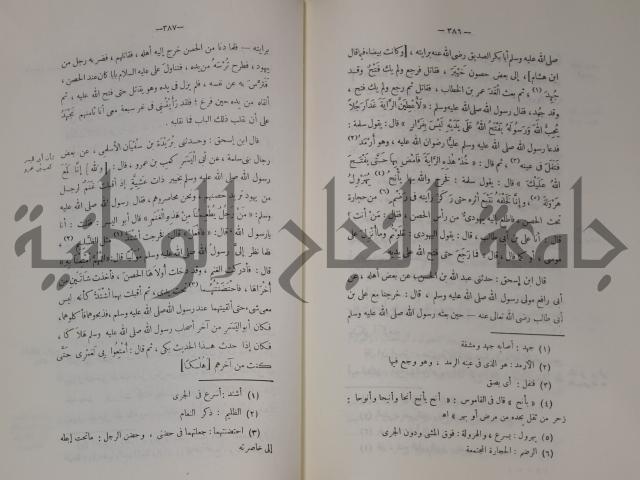 — ٣٨٦ —
صلى الله عليه وسلم أبا بكر الصديق رضى الله عنه برايته ، [وكانت بيضاء فيما قال
ابن هشام] ، إلى بعض حصون خَيْبَرَ ، فقاتل فرجع ولم يك فَتْحٌ وقد
جُهِدَ (١) ، ثم بعث الغَدَ عمر بن الخطاب ، فقاتل ثم رجع ولم يك فتح ،
وقد جُهِد ، فقال رسول الله صلى الله عليه وسلم : « لَأُعْطِيَنَّ الرَّايَةَ غَدًا رَجُلًا
يُحِبُّ اللهَ وَرَسُولَهُ يَفْتَحُ اللهُ عَلَى يَدَيْهِ لَيْسَ بِفَرَّارٍ » قال : يقول سلمة :
فدعا رسول الله صلى الله عليه وسلم عليًّا رضوان الله عليه ، وهو أرْمَدُ (٢)
فتَفَلَ فى عينه (٣) ، ثم قال : « خُذْ هَذِهِ الرَّايَةَ فَامْضِ بِهَا حَتَّى يَفْتَحَ
اللهُ عَلَيْكَ » قال : يقول سلمة : فخرج والله بها يَأْنِحُ (٤) يُهَرْوِلُ
هَرْوَلَةً (٥) ، وإنا لَخَلْفَهُ نتبع أثره حتى رَكَزَ رايته فى رَضْمٍ (٦) من حجارة
تحت الحصن ، فاطلع إليه يهودى من رأس الحصن ، فقال : مَنْ أنت ؟
قال : أنا على بن أبى طالب ، قال : يقول اليهودى : عَلَوْتُمْ وما أنزل على
موسى ، أو كما قال ، قال : فما رَجَعَ حتى فتح الله على يديه
قال ابن إسحق : حدثنى عبد الله بن الحسن ، عن بعض أهله ، عن
أبى رافع مولى رسول الله صلى الله عليه وسلم ، قال : خرجنا مع على بن
أبى طالب رضى الله تعالى عنه — حين بعثه رسول الله صلى الله عليه وسلم
(١) جهد : أصابه جهد ومشقة
(٢) الأرمد : هو الذى فى عينه الرمد ، وهو وجع فيها
(٣) فتفل : أى بصق
(٤) « يأنح » قال فى القاموس : « أنح يأنح أنحا وأنيحا وأنوحا :
زحر من ثقل يجده من مرض أو بهر » اه
(٥) يهرول : يسرع ، والهرولة : فوق المشى ودون الجرى
(٦) الرضم : الحجارة المجتمعة
— ٣٨٧ —
برايته — فلما دنا من الحصن خرج إليه أهله ، فقاتلهم ، فضربه رجل من
يهود ، فطرح تُرْسَهُ من يده ، فتناول على عليه السلام بابا كان عند الحصن ،
فَتَرَّسَ به عن نفسه ، فلم يزل فى يده وهو يقاتل حتى فتح الله عليه ، ثم
ألقاه من يده حين فرغ ؛ فلقد رَأَيْتُنِى فى نفر سبعة معى أنا ثامنهم نَجْهَدُ
على أن نقلب ذلك الباب فما نقلبه
قال ابن إسحق : وحدثنى بُرَيْدَة بن سُفْيان الأسلمى ، عن بعض
رجال بنى سلمة ، عن أبى اليَسَر كعب بن عمرو ، قال : [والله] إنَّا لَمَعَ
رسول الله صلى الله عليه وسلم بخيبر ذات عَشِيَّةٍ إذ أقبلت غَنَمٌ لرجل
من يهود تريد حصنهم ، ونحن محاصروهم ، فقال رسول الله صلى الله عليه
وسلم : « مَنْ رَجُلٌ يُطْعِمُنَا مِنْ هَذِهِ الْغَنَمِ » قال أبو اليسر : فقلت : أنا
يا رسول الله ، قال : « فَافْعَلْ » قال : فخرجت أشتدُّ (١) مثل الظليم (٢)
فلما نظر إلى رسول الله صلى الله عليه وسلم موليا قال : « اللهم أمتعنا به »
قال : فأدركت الغنم ، وقد دخلت أولاها الحصن ، فأخذت شاتَيْنِ من
أخراها ، فاحتضنتهما (٣) تحت يدى ، ثم أقبلت بهما أشتدُّ كأنه ليس
معى شىء حتى ألقيتهما عند رسول الله صلى الله عليه وسلم ، فذبحوهما فأكلوهما ،
فكان أبو اليَسَر من آخر أصحاب رسول الله صلى الله عليه وسلم هلاكا ،
فكان إذا حدث هذا الحديث بكى ، ثم قال : أُمْتِعُوا بِى لَعَمْرِى حتى
كنت من آخرهم [هُلْكًا]
(١) أشتد : أسرع فى الجرى
(٢) الظليم : ذكر النعام
(٣) احتضنتهما : جعلتهما فى حضنى ، وحضن الرجل : ماتحت إبطه
إلى خاصرته
جامعة النجاح الوطنية